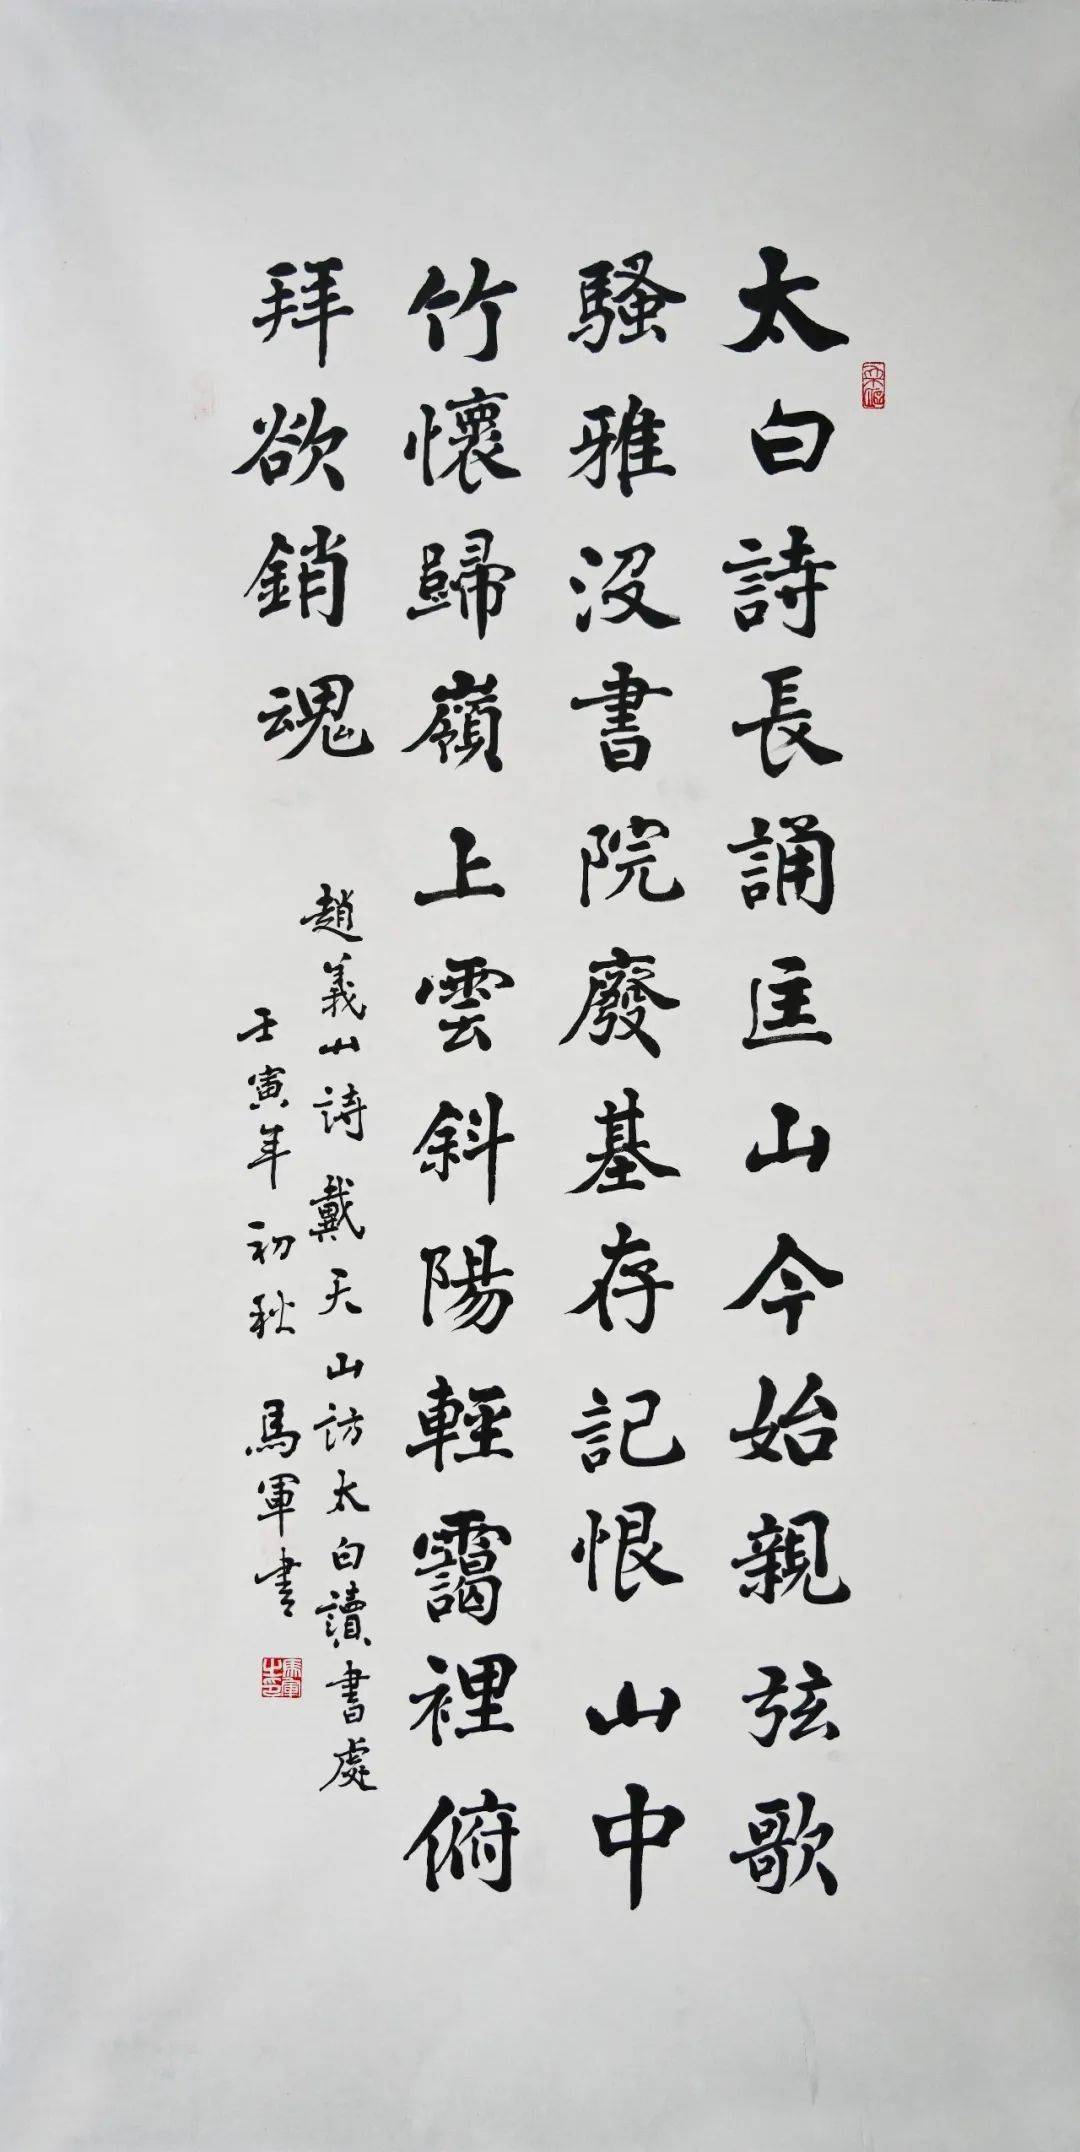 太白詩長誦匡山今始親弦歌
騷雅沒書院廢基存記恨山中
竹懷歸嶺上雲斜陽輕靄裡俯
拜欲銷魂
趙義山詩戴天山訪太白讀書處
壬寅年初秋馬軍書
馬軍之印